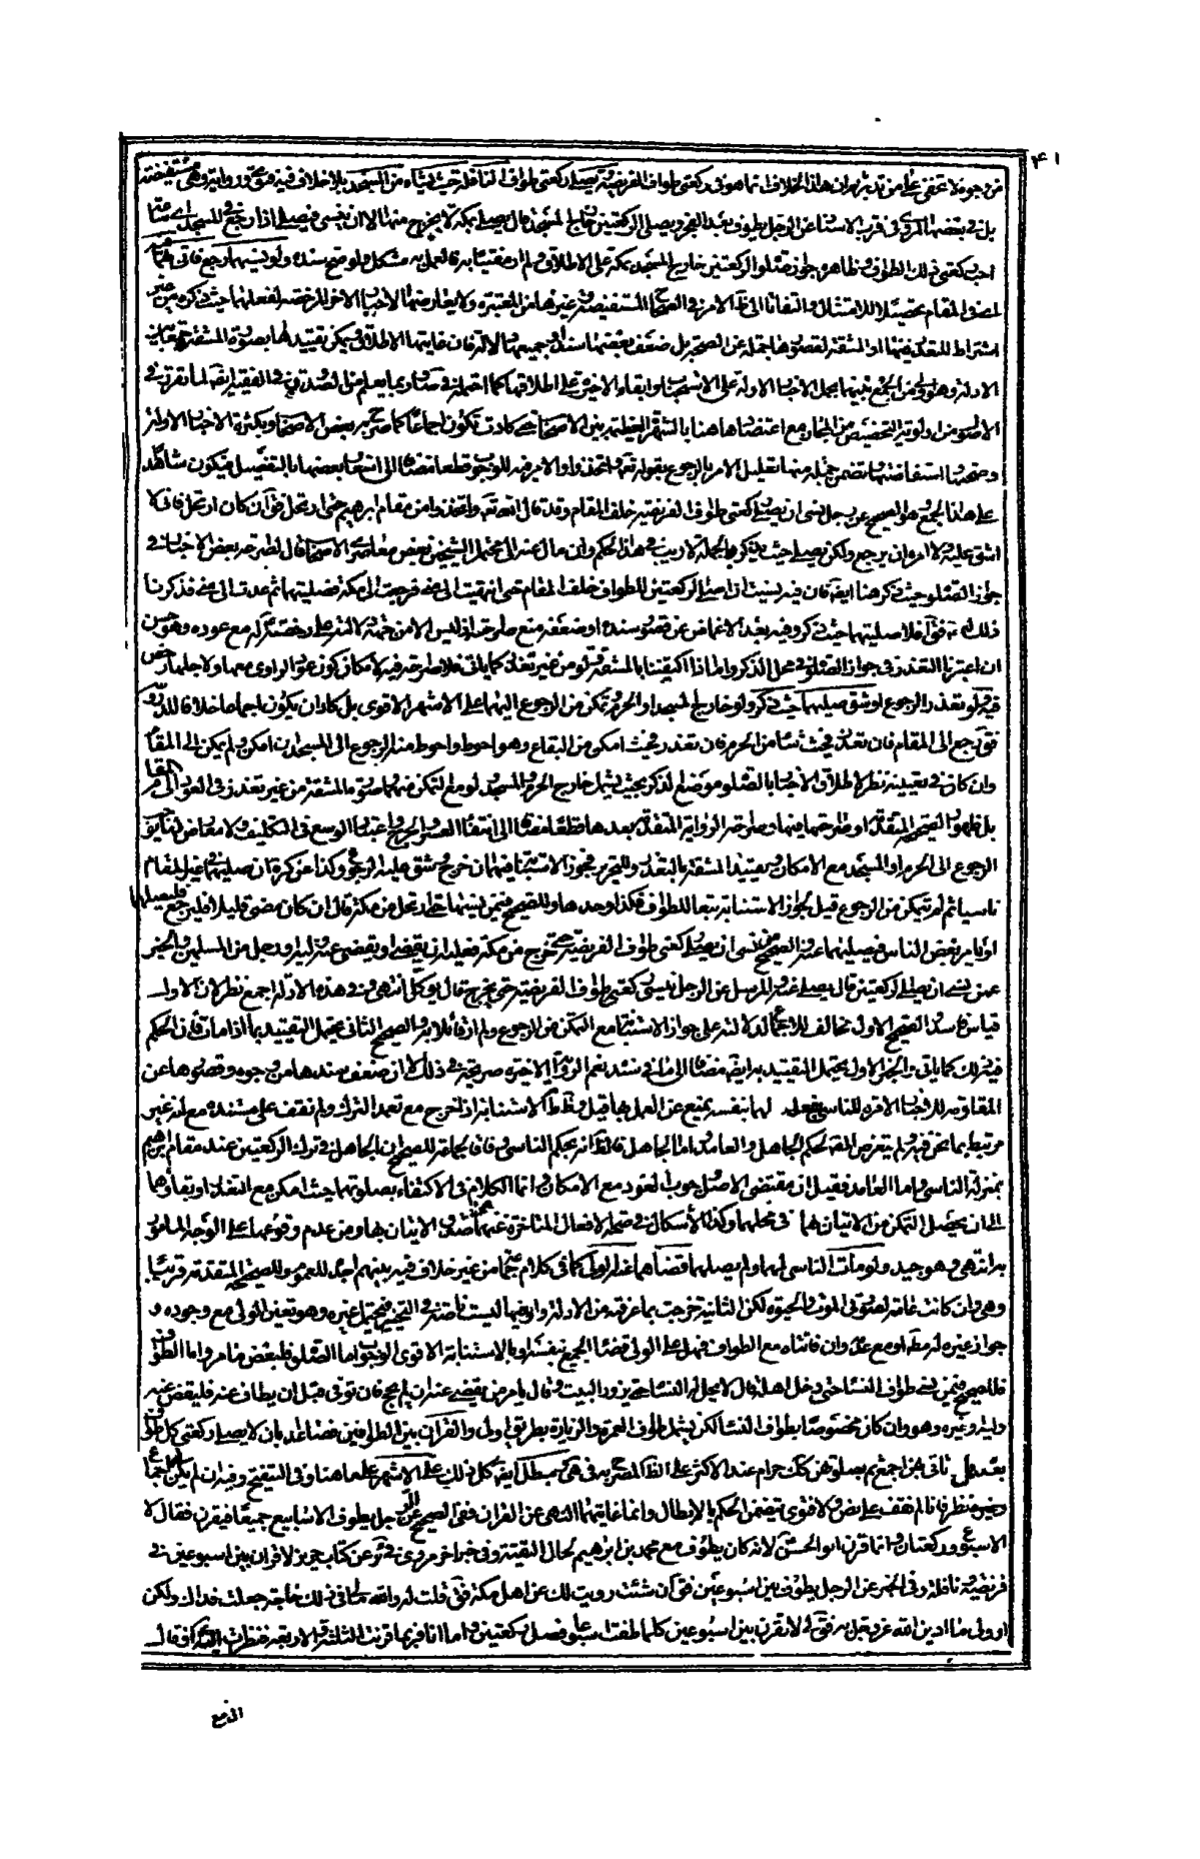 ٤١
من وجوه لا تخفى على من تدبر ثم ان هذا الخلاف انما هو في ركعتي طواف الفريضة ويصلى ركعتي طواف النافلة حيث شاء من المسجد بلا خلاف فيه فتوى ورواية وهي مستفيضة
بل في بعضها المروى في قرب الاسناد عن الرجل يطوف بعد الفجر ويصلى الركعتين خارج المسجد قال يصلى بمكة لا يخرج منها الا ان ينسى فيصلى اذا رجع في المسجد اى ساعة
احب ركعتي ذلك الطواف وظاهره جواز صلوة الركعتين خارج المسجد بمكة على الاطلاق ولم ار مفتيا به فالعمل به مشكل ولو صح سنده ولو نسيهما رجع فاتى بهما
في المقام تحصيلا للامتثال والتفاتا الى الامر في الصحاح المستفيضة وغيرها من المعتبرة ولا يعارضها الاخبار الاخر المرخصة لفعلهما حيث ذكره من غير
اشتراط للتعذر فيها او المشقة لقصورها جملة عن الصحة بل ضعف بعضها سندا وجميعها دلالة فان غايتها الاطلاق ويمكن تقييدها بصورة المشقة
الادلة وهو اولى من الجمع بينهما بحمل الاخبار الاولة على الاستحباب وابقاء الاخيرة على اطلاقها كما احتمله في
الاصول من اولوية التخصيص من المجاز مع اعتضادها هنا بالشهرة العظيمة بين الاصحاب حتى كادت تكون اجماعا كما صرح به بعض الاصحاب وبكثرة الاخبار الاولة
وصحتها واستفاضتها وتضمن جملة منها تعليل الامر بالرجوع بقوله تعالى واتخذوا والامر فيه للوجوب قطعا مضافا الى اشعار بعضها بالتفصيل فيكون شاهدا
على هذا الجمع وهو الصحيح عن رجل نسى ان يصلى ركعتي طواف الفريضة خلف المقام وقد قال الله تعالى واتخذوا من مقام ابرهيم حتى ارتحل فق ان كان ارتحل فانى لا
اشق عليه ولا امره ان يرجع ولكن يصلى حيث يذكر وبالجملة لا ريب في هذا الحكم وان مال عنه الى محتمل الشيخ بعض معاصرى الاصحاب قال لصراحة بعض الاخبار في
جواز الصلوة حيث ذكر هنا ايضا فان فيه نسيت ان اصلى الركعتين للطواف خلف المقام حتى انتهيت الى منى فرجعت الى مكة فصليتهما ثم عدت الى منى فذكرنا
ذلك له فق افلا صليتهما حيث ذكر وفيه بعد الاغماض عن قصور سنده او ضعفه منع صراحته اذ ليس الا من جهة دلالته على رخصته له مع عوده وهو حسن
ان اعتبرنا التعذر في جواز الصلوة في محل الذكر واما اذا اكتفينا بالمشقة ولو من غير تعذر كما ياتى فلا صراحة فيه لامكان كون عود الراوى معها ولاجلها رخص
فيه ولو تعذر الرجوع او شق صليهما حيث ذكر ولو خارج المسجد او الحرم ولم يمكن من الرجوع اليهما على الاشهر الاقوى بل كاد ان يكون اجماعا خلافا للدروس
فق رجع الى المقام فان تعذر فحيث شاء من الحرم فان تعذر فحيث امكن من البقاع وهو احوط واحوط منه الرجوع الى المسجد ان امكن ولم يمكن الى المقام
وان كان في تعيينه نظر لاطلاق الاخبار بالصلوة موضع الذكر بحيث يشمل خارج الحرم والمسجد ولو مع التمكن منهما وصورة المشقة من غير تعذر في العود الى المقام
بل ظهور الصحيح المتقدم او صراحته فيها وصراحة الرواية المتقدمة بعدها قطعا مضافا الى انتفاء العسر والحرج واعتبار الوسع في التكليف ولا معارض
الرجوع الى الحرم او المسجد مع الامكان وتقييد المشقة بالتعذر وللتحرير فجوز الاستنابة فيهما ان خرج وشق عليه الرجوع وكذا عن كره ان صليهما في غير المقام
ناسيا ثم لم يتمكن من الرجوع قيل لجواز الاستنابة تبعا للطواف فكذا وحدها وللصحيح فيمن نسيهما حتى ارتحل من مكة قال ان كان مضى قليلا فليرجع فليصلهما
او يامر بعض الناس فيصليهما عنه والصحيح من نسى ان يصلى ركعتي طواف الفريضة حتى خرج من مكة فعليه ان يقضى او يقضى عنه وليه او رجل من المسلمين والخبر
عمن نسى ان يصلى الركعتين قال يصلى عنه والمرسل عن الرجل نسى ركعتي طواف الفريضة حتى يخرج قال يوكل انتهى وفي هذه الادلة اجمع نظر لان الاول
قياس فاسد والصحيح الاول مخالف للاجماع لدلالته على جواز الاستنابة مع التمكن من الرجوع ولم ار قائلا به والصحيح الثانى يحتمل التقييد بما اذا مات فان الحكم
فيه ذلك كما ياتى والخبر الاول يحتمل التقييد به ايضا مضافا الى ما في سنده نعم الرواية الاخيرة صريحة في ذلك الا ان ضعف سندها من وجوه وقصورها عن
المقاومة للاخبار الامرة للناسى بفعله لهما بنفسه يمنع عن العمل بها
مرتبط بما نحن فيه ولم يتعرض المصنف لحكم الجاهل والعامد اما الجاهل فالظاهر انه بحكم الناسى وفاقا لجماعة للصحيح ان الجاهل في ترك الركعتين عند مقام ابرهيم
بمنزلة الناسى واما العامد فقيل ان مقتضى الاصل وجوب العود مع الامكان وانما الكلام في الاكتفاء بصلوتهما حيث امكن مع التعذر او بقاؤهما
الى ان يحصل التمكن من الاتيان بهما في محلهما وكذا الاشكال في صحة الافعال المتاخرة عنهما من صدق الاتيان بها ومن عدم وقوعها على الوجه المامور
به انتهى وهو جيد ولو مات الناسى لهما ولم يصلهما قضاهما عنه الولى كما في كلام جماعة من غير خلاف فيه بينهم اجده للعموم وللصحيح المتقدمة قريبا
وهى وان كانت عامة لصورتى الموت والحيوة لكن الثانية خرجت بما عرفته من الادلة وايضا ليست ناصة في التخيير فيحتمل غيره وهو تعين الولى مع وجوده و
جواز غيره له مطلقا او مع عدمه وان فاتتاه مع الطواف فهل على الولى قضاء الجميع بنفسه او بالاستنابة الاقوى الوجوب اما الصلوة فلبعض ما مر واما الطواف
فللصحيح فيمن نسى طواف النساء حتى دخل اهله قال لا يحل له النساء حتى يزور البيت وقال يامر من يقضى عنه ان لم يحج فان توفى قبل ان يطاف عنه فليقض عنه
وليه او غيره وهو وان كان مخصوصا بطواف النساء لكن يشمل طواف العمرة والزيارة بطريق اولى والقران بين الطوافين فصاعدا بان لا يصلى ركعتي كل طواف
بعده بل ياتى بهن اجمع ثم بصلوتهن كك حرام عند الاكثر على الظاهر المصرح به في
الاسبوع وركعتان وانما قرن ابو الحسن لانه كان يطوف مع محمد بن ابرهيم لحال التقية وفي خبر اخر مروى في عن كتاب حريز لا قران بين اسبوعين في
فريضة ونافلة وفي الخبر عن الرجل يطوف بين اسبوعين فق ان شئت رويت لك عن اهل مكة فق قلت له والله مالى في ذلك حاجة جعلت فداك ولكن
ارو لى ما ادين الله عز وجل به فق لا تقرن بين اسبوعين كلما طفت اسبوعا فصل ركعتين واما انا فربما قرنت الثلثة والاربعة فنظرت اليه فقال
انى مع